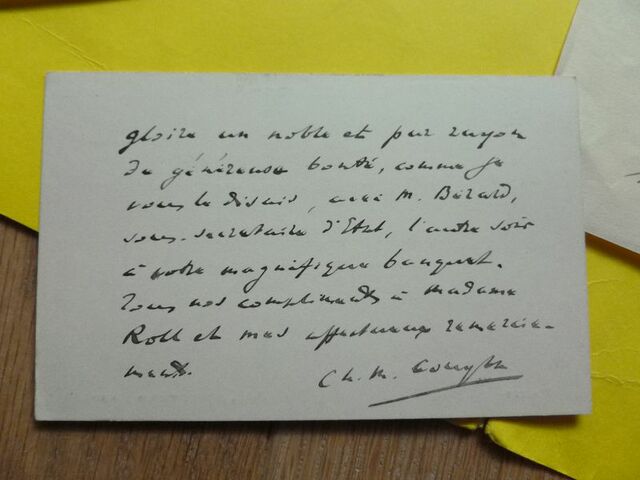 gloire un noble et pur rayon
de généreuse bonté, comme je
vous le disais, avec M. Bérard,
sous-secrétaire d'Etat, l'autre soir
à votre magnifique banquet.
Tous nos compliments à madame
Roll et mes affectueux remercie-
ments.
Ch. M.